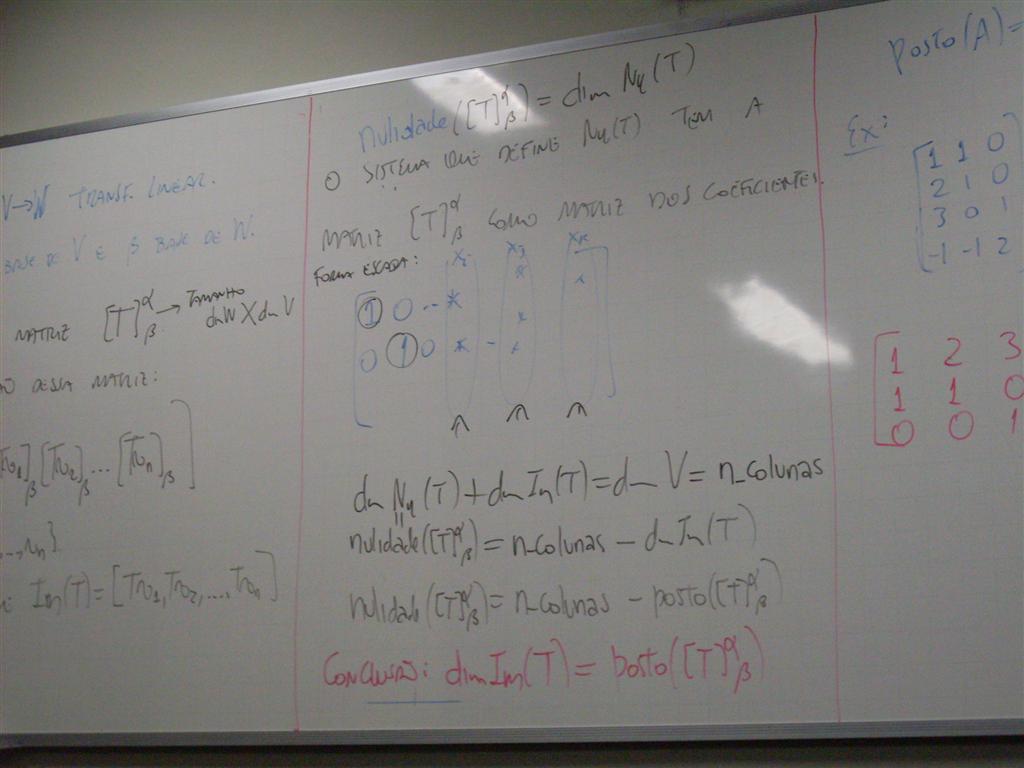 V→W TRANSF. LINEAR.
BASE DE V E β BASE DE W.
MATRIZ [T]^α_β → TAMANHO
dim W X dim V
DESSA MATRIZ:
[Tv_1]_β [Tv_2]_β ... [Tv_n]_β ]
..., v_n}
Im(T) = [Tv_1, Tv_2, ..., Tv_n]
nulidade([T]^α_β) = dim Nu(T)
O SISTEMA QUE DEFINE Nu(T) TEM A
MATRIZ [T]^α_β COMO MATRIZ DOS COEFICIENTES.
FORMA ESCADA:
1 0 -- *
0 1 0 * - *
dim Nu(T) + dim Im(T) = dim V = n_colunas
nulidade([T]^α_β) = n_colunas - dim Im(T)
nulidade([T]^α_β) = n_colunas - posto([T]^α_β)
CONCLUSÃO: dim Im(T) = posto([T]^α_β)
posto(A) =
Ex:
1 1 0
2 1 0
3 0 1
-1 -1 2
1 2 3
1 1 0
0 0 1